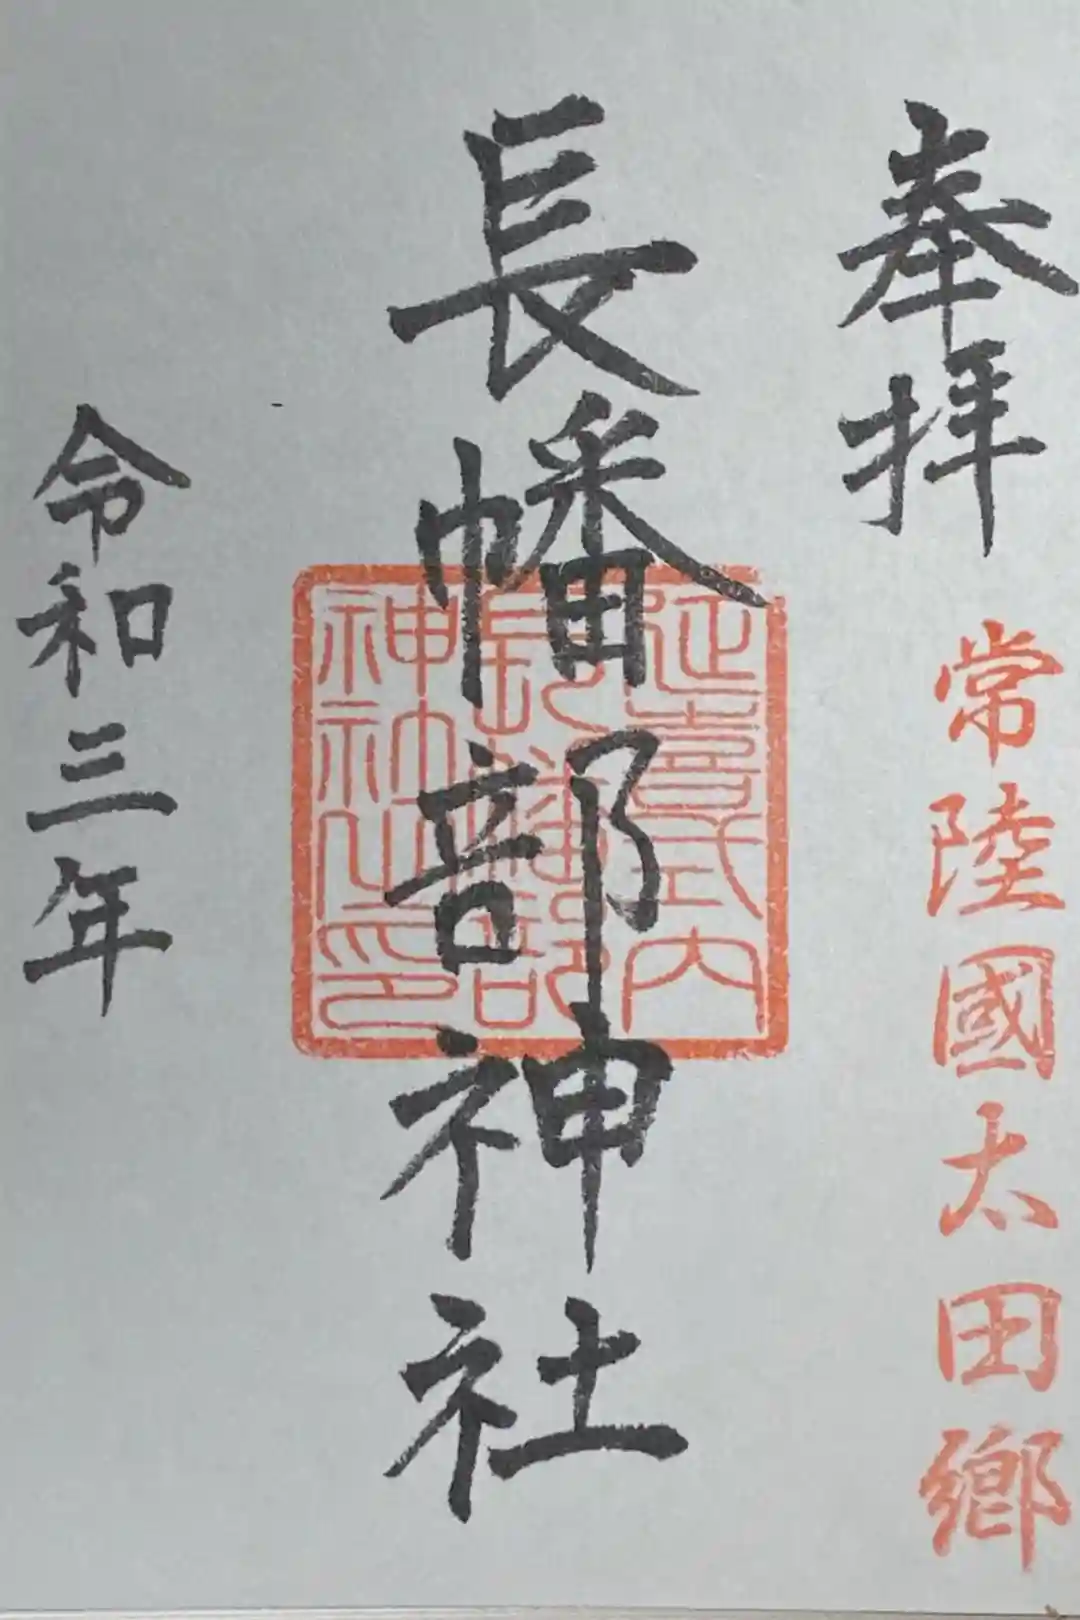 奉拝
常陸國太田郷
長幡部神社
延喜式内
長幡部
神社之印
令和三年